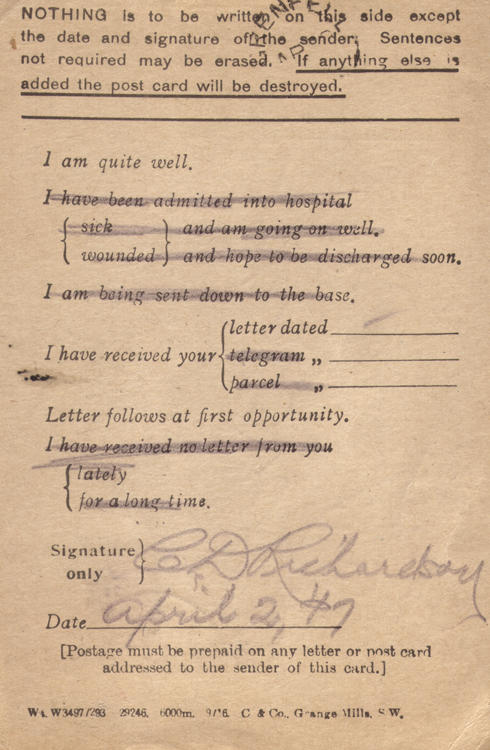 NOTHING is to be written on this side except
the date and signature of the sender. Sentences
not required may be erased. If anything else is
added the post card will be destroyed.
I am quite well.
I have been admitted into hospital
sick and am going on well.
wounded and hope to be discharged soon.
I am being sent down to the base.
letter dated
I have received your telegram „
parcel „
Letter follows at first opportunity.
I have received no letter from you
lately
for a long time.
Signature only
C D Richardson
Date April 2, '17
[Postage must be prepaid on any letter or post card
addressed to the sender of this card.]
Wt. W3497/293 29246. 6000m. 9/16. C & Co., Grange Mills, S.W.